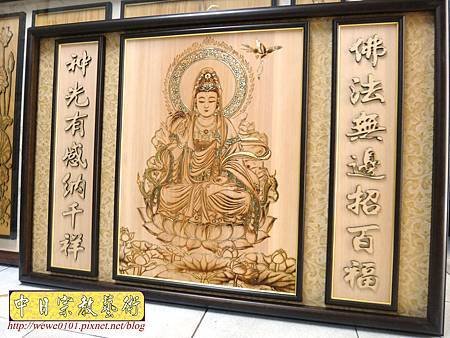 佛法無邊招百福
神光有感納千祥
中日宗教藝術
http://wewe0101.pixnet.net/blog